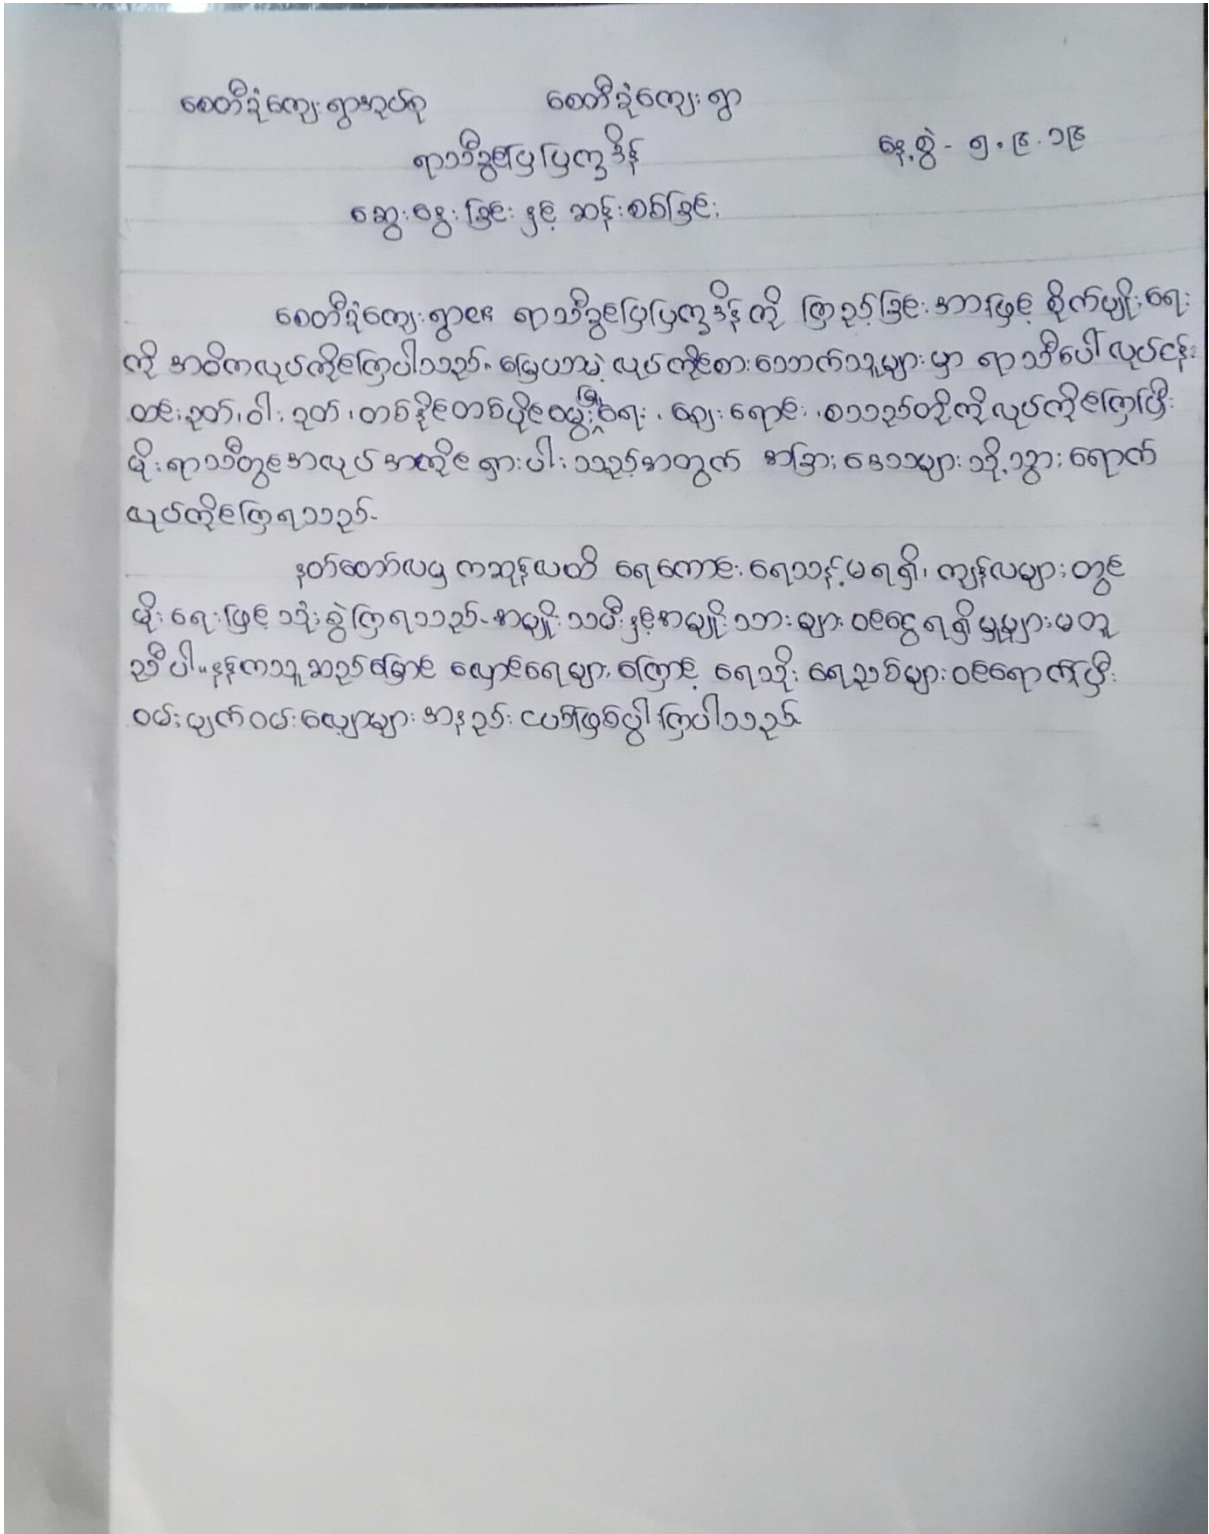 စေတီဒုံကျေးရွာအုပ်စု စေတီဒုံကျေးရွာ
ရာသီခွင်ပြပြက္ခဒိန် နေ့စွဲ - ၅.၉.၁၉
ဆွေးနွေးခြင်းနှင့် ဆန်းစစ်ခြင်း
စေတီဒုံကျေးရွာ၏ ရာသီခွင်ပြပြက္ခဒိန်ကို ကြည့်ခြင်းအားဖြင့် စိုက်ပျိုးရေး
ကို အဓိကလုပ်ကိုင်ကြပါသည်။ မြေယာမဲ့ လုပ်ကိုင်စားသောက်သူများမှာ ရာသီပေါ်လုပ်ငန်း
ထင်းခုတ်၊ ဝါးခုတ်၊ တစ်နိုင်တစ်ပိုင်မွေးမြူရေး၊ ဈေးရောင်း၊ စသည်တို့ကိုလုပ်ကိုင်ကြပြီး
မိုးရာသီတွင်အလုပ်အကိုင်ရှားပါးသည့်အတွက် အခြားဒေသများသို့သွားရောက်
လုပ်ကိုင်ကြရသည်-
နတ်တော်လမှ ကဆုန်လထိ ရေကောင်းရေသန့်မရရှိ၊ ကျန်လများတွင်
မိုးရေဖြင့်သုံးစွဲကြရသည်- အမျိုးသမီးနှင့်အမျိုးသားများ ဝင်ငွေရရှိမှုများမတူ
ညီပါ။ နုန်ကသူဆည်မြောင် လျှောင်ရေများကြောင့် ရေသိုးရေညစ်များဝင်ရောက်ပြီး
ဝမ်းပျက်ဝမ်းလျှောများ အနည်းငယ်ဖြစ်ပွါးကြပါသည်-